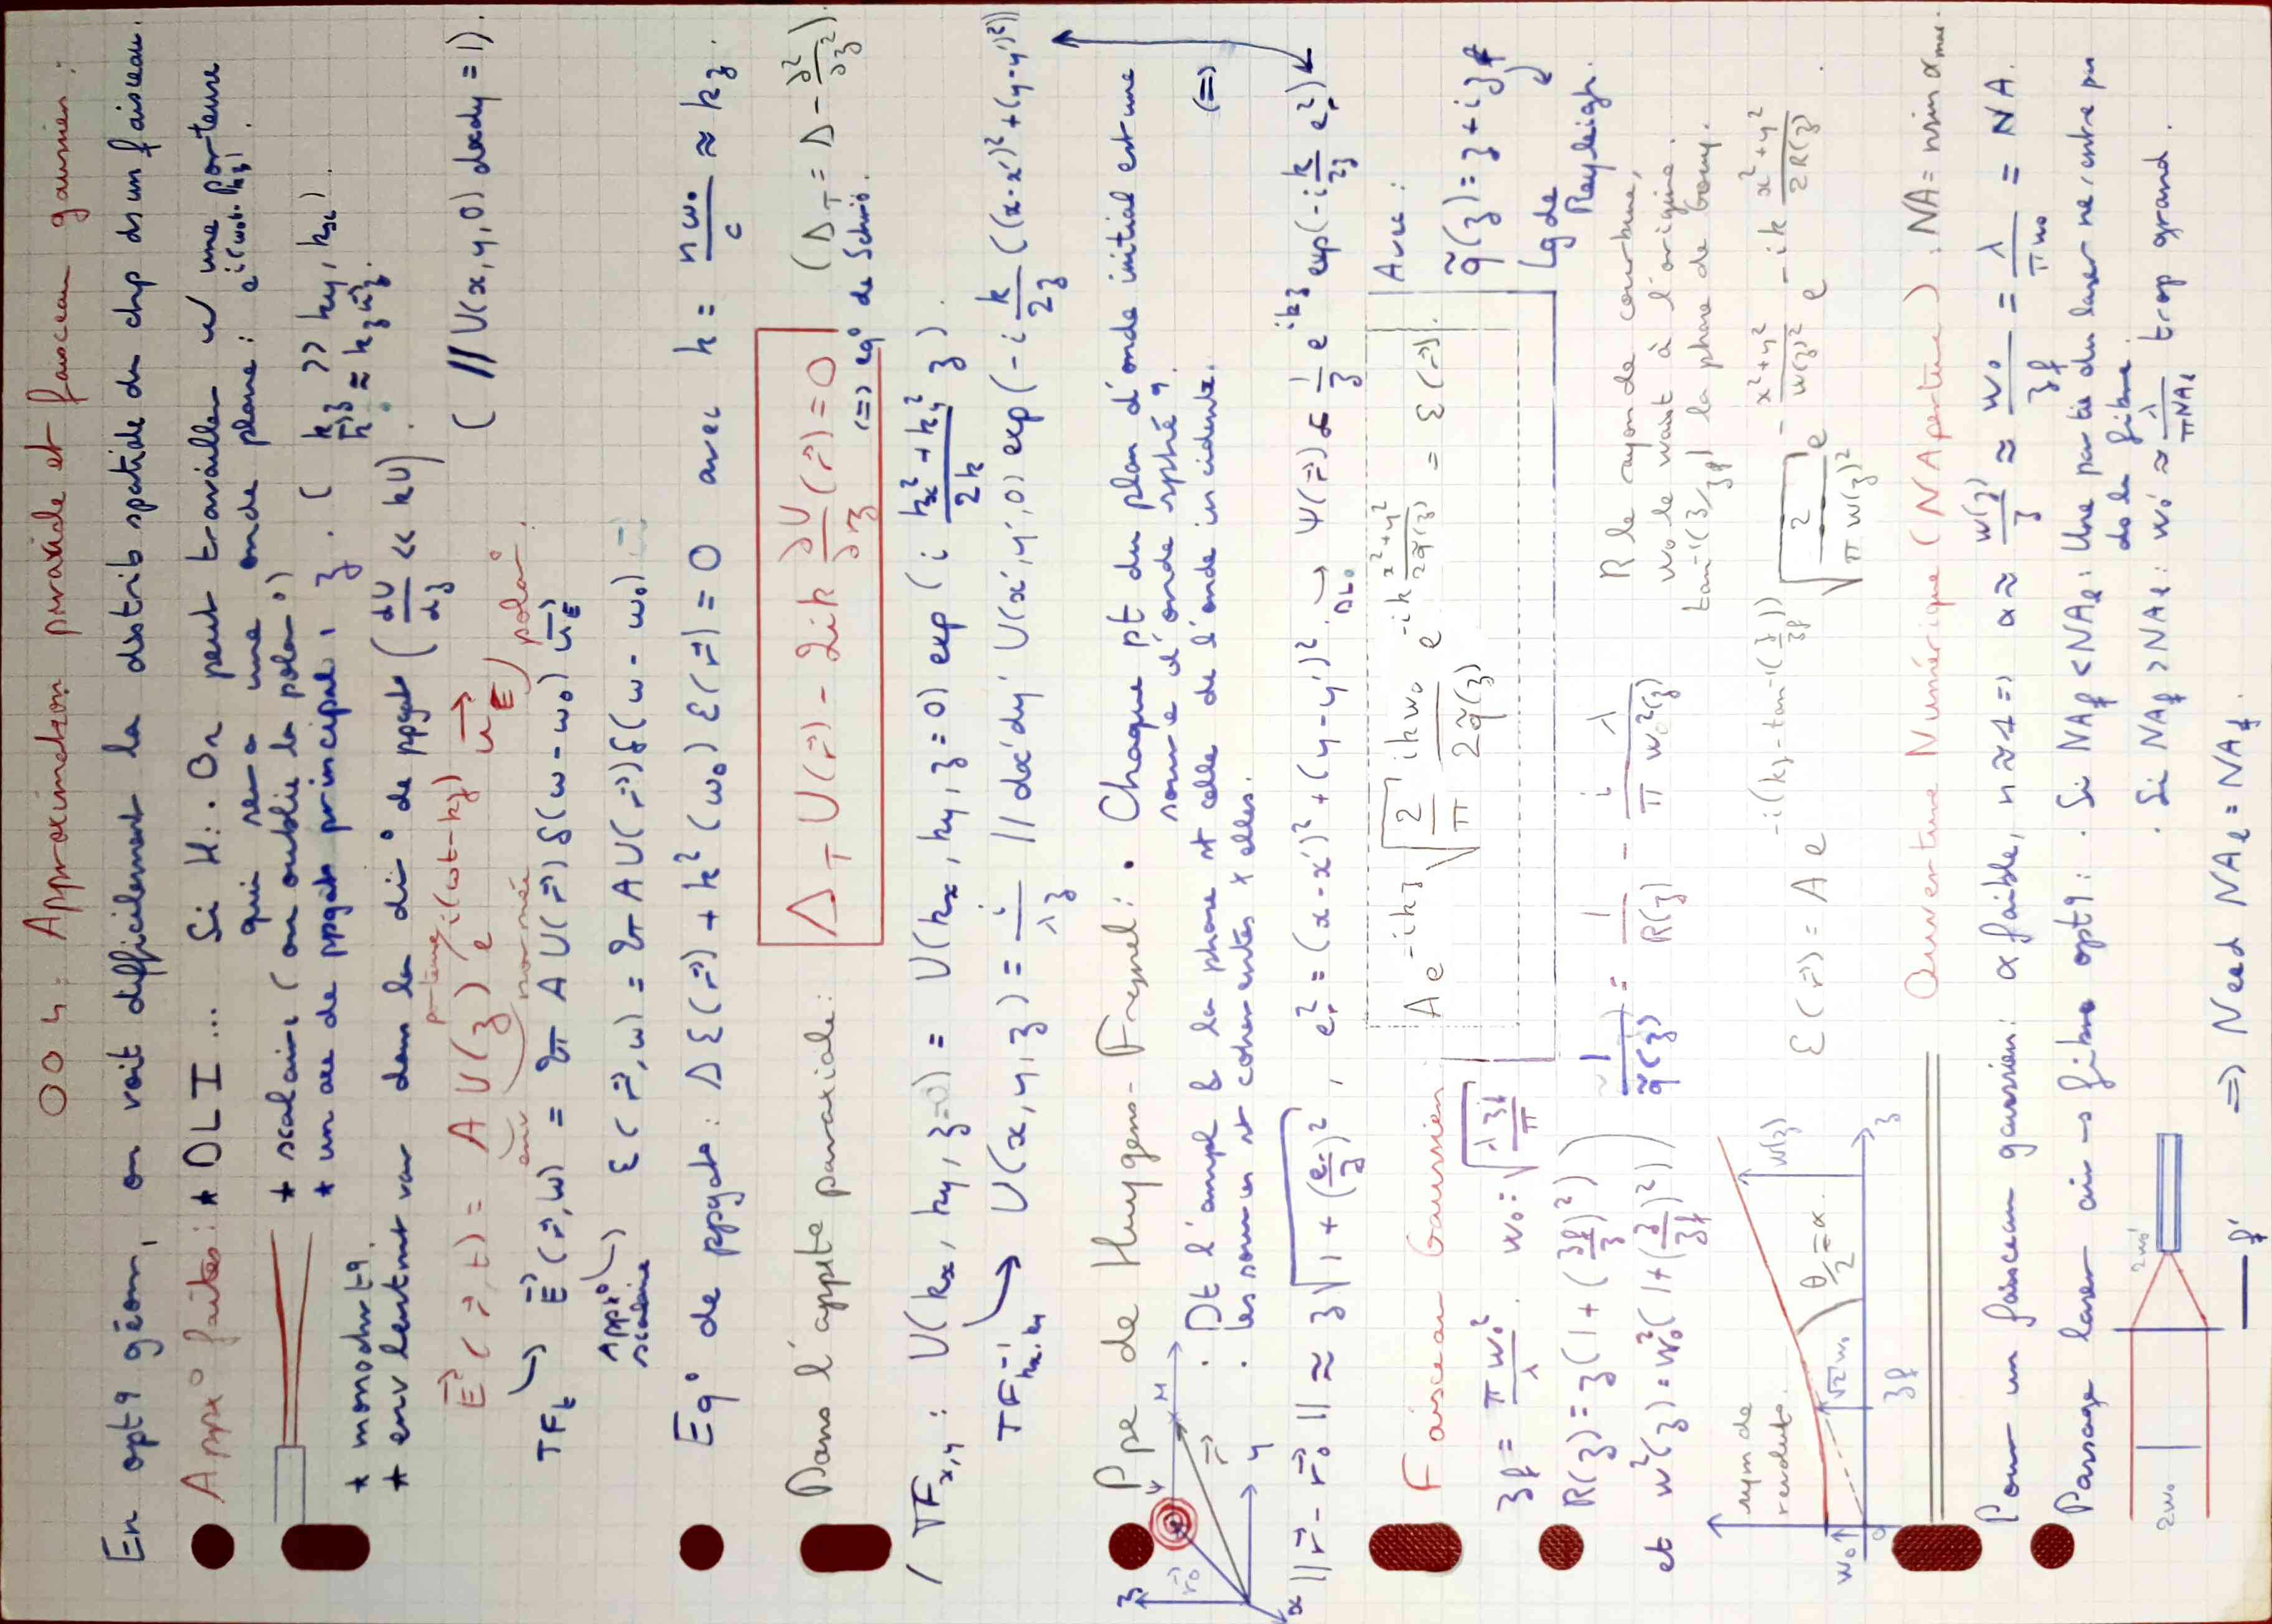 OO 4 : Approximation paraxiale et faisceau gaussien :
En opt9 géom, on voit difficilement la distrib spatiale du chp d'un faisceau.
Appx° faites : * DLI ... Si H : . On peut travailler w une porteuse
qui sera une onde plane : e^{i(ω₀t-k₀z)}.
* scalaire (on oublie la polar°)
* un axe de ppgat° principal, z . ( k_z >> k_y, k_x ) .
k⃗ ≈ k_z u⃗_z.
* monochrt9.
* env lentmt var dans la dir° de ppgat° ( dU/dz << kU ) .
E⃗(r⃗,t) = A U(z) e^{i(ωt-kz)} u⃗_E
env porteuse normée polar°.
( ∬ U(x,y,0) dxdy = 1 ).
TF_t ↳ E⃗(r⃗,ω) = 2π A U(r⃗) δ(ω-ω₀) u⃗_E
Appx° scalaire ↳ ε(r⃗,ω) = 2π A U(r⃗) δ(ω-ω₀)
Eq° de ppgat° : Δε(r⃗) + k²(ω₀) ε(r⃗) = 0 avec k = nω₀/c ≈ k_z .
Dans l'appxto paraxiale : Δ_T U(r⃗) - 2ik ∂U/∂z (r⃗) = 0 (Δ_T = Δ - ∂²/∂z²).
(=) eq° de Schrö.
( TF_{x,y} : U(k_x, k_y, z) = U(k_x, k_y, z=0) exp( i (k_x² + k_y²)/2k z ) .
TF⁻¹_{kx,ky} ↳ U(x,y,z) = i/λz ∬ dx'dy' U(x',y',0) exp( -i k/2z ((x-x')² + (y-y')²))
Ppe de Huygens-Fresnel : . Chaque pt du plan d'onde initial est une
source d'onde sphé9.
. Dt l'ampl & la phase st celle de l'onde incidente.
. les sources st cohérentes ≠ elles. (=)
||r⃗ - r⃗₀|| ≈ z √(1 + (e_r/z)²) , e_r² = (x-x')² + (y-y')² . ↳ DL. Ψ(r⃗) α 1/z e^{ikz} exp(-i k/2z e_r²)
x y z r⃗₀ r⃗ M Ψ
Faisceau Gaussien : A e^{-ikz} √(2/π) ikw₀/2q̃(z) e^{-ik (x²+y²)/2q̃(z)} = ε(r⃗) .
Avec :
q̃(z) = z + i z_R
Lg de Rayleigh.
z_R = πw₀²/λ . w₀ = √(λz_R/π)
R(z) = z(1 + (z_R/z)²)
et w²(z) = w₀²(1 + (z/z_R)²)
1/q̃(z) = 1/R(z) - i λ/(π w₀²(z))
R le rayon de courbure,
w₀ le waist à l'origine.
tan⁻¹(z/z_R) la phase de Gouy.
sym de révoluto. w₀ √2w₀ w(z) θ/2 = α. z_R z 0
ε(r⃗) = A e^{-i(kz-tan⁻¹(z/z_R))} √(2/πw(z)²) e^{-(x²+y²)/w(z)²} e^{-ik (x²+y²)/2R(z)} .
Ouverture Numérique (NAperture) : NA = n sin α_max.
Pour un faisceau gaussien : α faible, n≈1 => α ≈ w(z)/z ≈ w₀/z_R = λ/πw₀ = NA.
Passage laser air → fibre opt9 : . Si NA_f < NA_l : Une partie du laser ne rentre pas
ds la fibre.
. Si NA_f > NA_l : w₀' ≈ λ/πNA_l trop grand.
2w₀ 2w₀' f'
=> Need NA_l = NA_f.